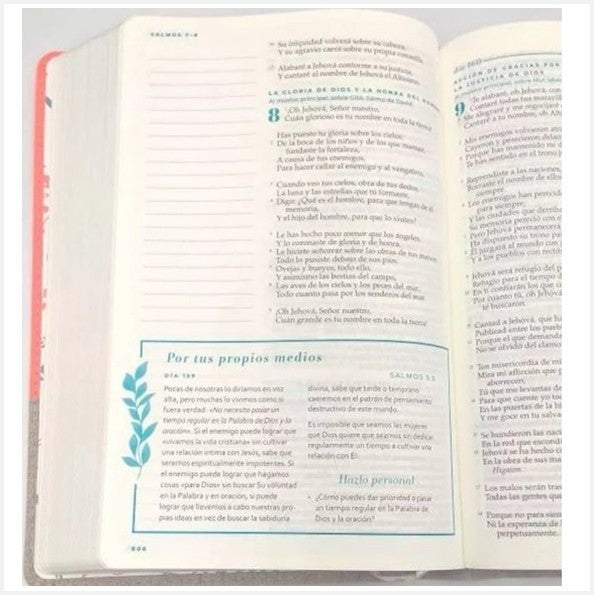 SALMOS 7-8
Su iniquidad volverá sobre su cabeza,
Y su agravio caerá sobre su propia coronilla.
Alabaré a Jehová conforme a su justicia,
Y cantaré al nombre de Jehová el Altísimo.
LA GLORIA DE DIOS Y LA HONRA DEL HOMBRE
Al músico principal; sobre Gitit. Salmo de David.
8 ¡Oh Jehová, Señor nuestro,
Cuán glorioso es tu nombre en toda la tierra!
Has puesto tu gloria sobre los cielos;
De la boca de los niños y de los que maman,
fundaste la fortaleza,
A causa de tus enemigos,
Para hacer callar al enemigo y al vengativo.
Cuando veo tus cielos, obra de tus dedos,
La luna y las estrellas que tú formaste,
Digo: ¿Qué es el hombre, para que tengas de él
memoria,
Y el hijo del hombre, para que lo visites?
Le has hecho poco menor que los ángeles,
Y lo coronaste de gloria y de honra.
Le hiciste señorear sobre las obras de tus manos;
Todo lo pusiste debajo de sus pies:
Ovejas y bueyes, todo ello,
Y asimismo las bestias del campo,
Las aves de los cielos y los peces del mar;
Todo cuanto pasa por los senderos del mar.
¡Oh Jehová, Señor nuestro,
Cuán grande es tu nombre en toda la tierra!
Por tus propios medios
DÍA 159
SALMOS 5:3
Pocas de nosotras lo diríamos en voz
alta, pero muchas lo vivimos como si
fuera verdad: «No necesito pasar un
tiempo regular en la Palabra de Dios y la
oración». Si el enemigo puede lograr que
vivamos la vida cristiana sin cultivar
una relación íntima con Jesús, sabe que
seremos espiritualmente impotentes. Si
el enemigo puede lograr que hagamos
cosas «para Dios» sin buscar Su voluntad
en la Palabra y en oración, si puede
lograr que llevemos a cabo nuestras pro-
pias ideas en vez de buscar la sabiduría
divina, sabe que tarde o temprano
caeremos en el patrón de pensamiento
destructivo de este mundo.
Es imposible que seamos las mujeres
que Dios quiere que seamos sin dedicar
regularmente un tiempo a cultivar una
relación con Él.
Hazlo personal
• ¿Cómo puedes dar prioridad a pasar
un tiempo regular en la Palabra de
Dios y la oración?
606
día 160
ACCIÓN DE GRACIAS POR
LA JUSTICIA DE DIOS
Al músico principal; sobre Mut-labén
9 Te alabaré, oh Jehová, con
Contaré todas tus maravillas
Me alegraré y me regocijaré
Cantaré a tu nombre, oh Alt
Mis enemigos volvieron atrás
Cayeron y perecieron delante
Porque has mantenido mi de
Te has sentado en el trono j
Reprendiste a las naciones,
Borraste el nombre de ellos
siempre.
Los enemigos han perecido
para siempre;
Y las ciudades que derribaste
Su memoria pereció con ell
Pero Jehová permanecerá
Ha dispuesto su trono par
Él juzgará al mundo con j
Y a los pueblos con rectit
Jehová será refugio del p
Refugio para el tiempo d
En ti confiarán los que co
Por cuanto tú, oh Jehová
te buscaron.
Cantad a Jehová, que ha
Publicad entre los puebl
Porque el que demanda
No se olvidó del clamo
Ten misericordia de mí
Mira mi aflicción que p
aborrecen,
Tú que me levantas de
Para que cuente yo tod
En las puertas de la hi
Y me goce en tu salva
Se hundieron las nacio
En la red que escondi
Jehová se ha hecho c
En la obra de sus ma
Higaion
Los malos serán tras
Todas las gentes que
Porque no para siem
Ni la esperanza de l
perpetuamente.